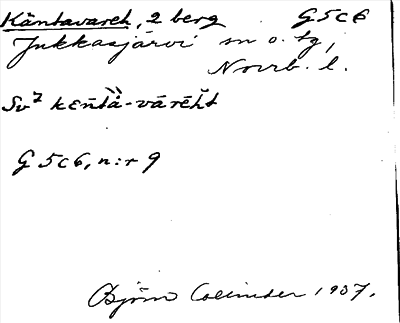 Käntavareh, 2 berg G5c6
Jukkasjärvi sn o. tg,
Norrb. l.
Sv² kɛ̄ntà-vārēh̆t
G5c6, n:r 9
Björn Collinder 1937.